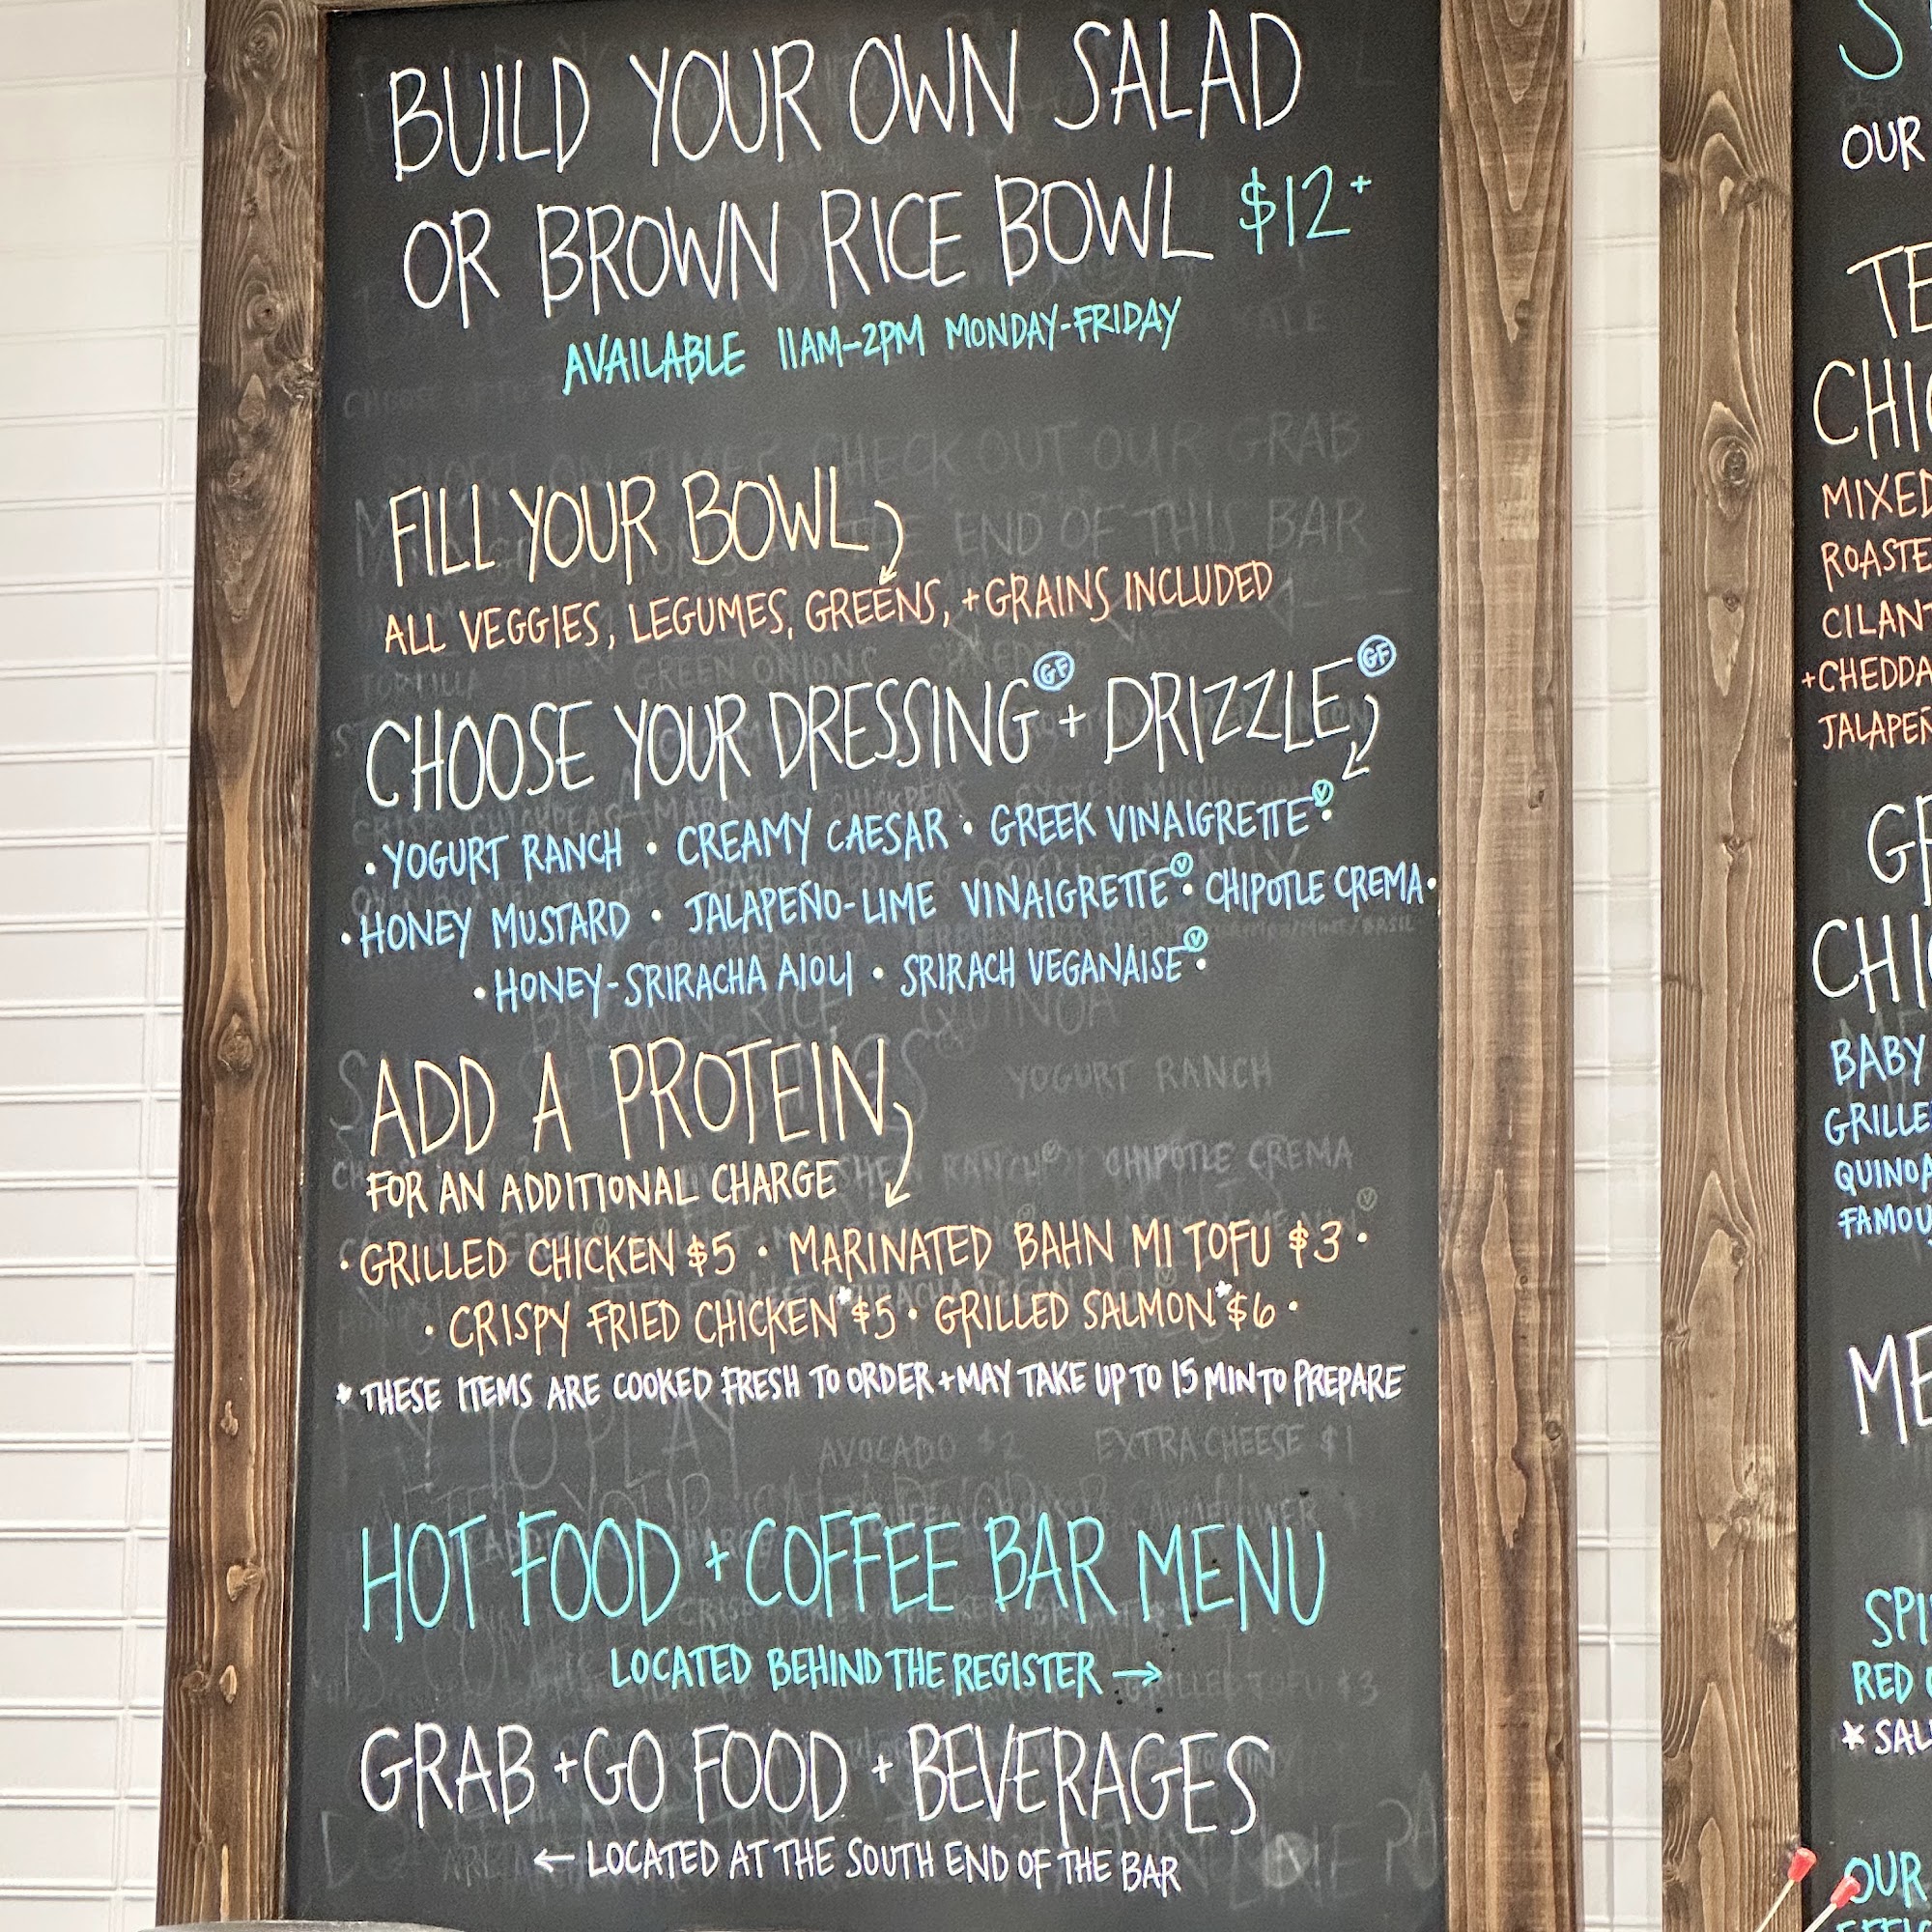 BUILD YOUR OWN SALAD
OR BROWN RICE BOWL $12+
AVAILABLE 11AM-2PM MONDAY-FRIDAY
FILL YOUR BOWL
ALL VEGGIES, LEGUMES, GREENS, + GRAINS INCLUDED
CHOOSE YOUR DRESSING GF + DRIZZLE GF
• YOGURT RANCH • CREAMY CAESAR • GREEK VINAIGRETTE V •
• HONEY MUSTARD • JALAPEÑO-LIME VINAIGRETTE V • CHIPOTLE CREMA •
• HONEY-SRIRACHA AIOLI • SRIRACH VEGANAISE V •
ADD A PROTEIN
FOR AN ADDITIONAL CHARGE
• GRILLED CHICKEN $5 • MARINATED BAHN MI TOFU $3 •
• CRISPY FRIED CHICKEN* $5 • GRILLED SALMON* $6 •
* THESE ITEMS ARE COOKED FRESH TO ORDER + MAY TAKE UP TO 15 MIN TO PREPARE
HOT FOOD + COFFEE BAR MENU
LOCATED BEHIND THE REGISTER →
GRAB + GO FOOD + BEVERAGES
← LOCATED AT THE SOUTH END OF THE BAR
OUR
TE
CHI
MIXED
ROASTE
CILAN
+CHEDDA
JALAPEÑ
GR
CHI
BABY
GRILLE
QUINOA
FAMOU
ME
SPI
RED
* SAL
OUR